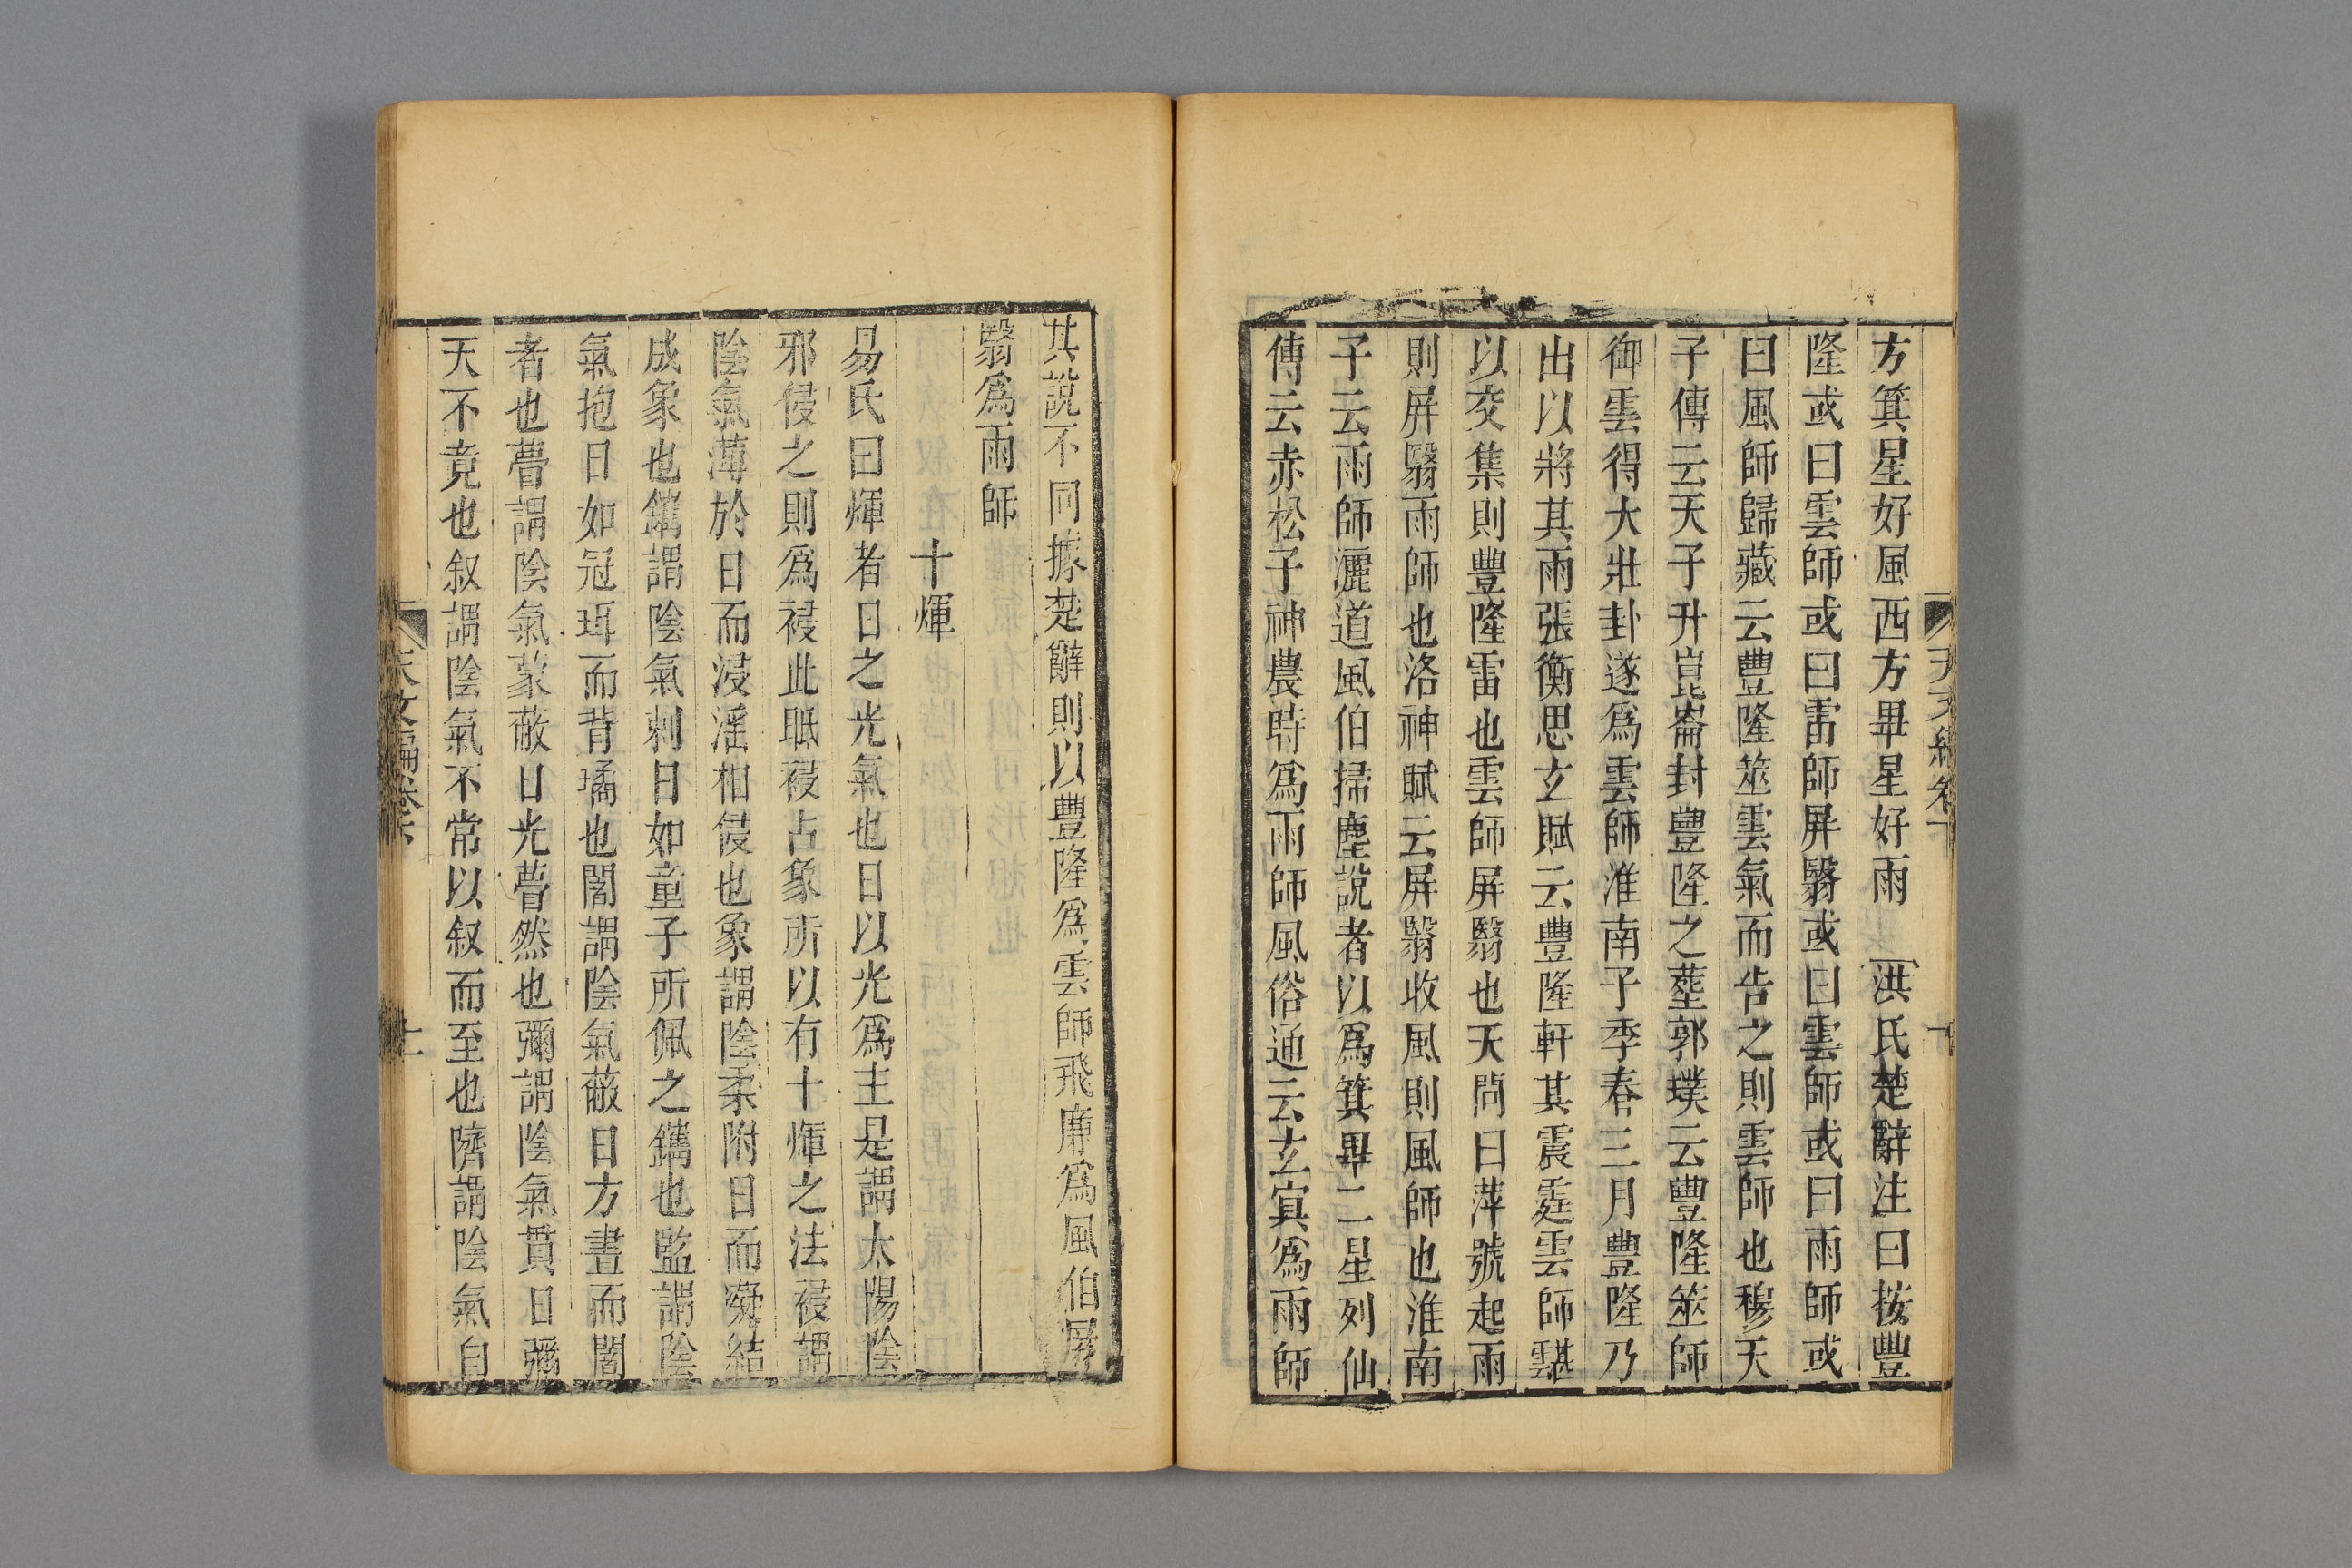 方箕星好風西方畢星好雨　洪氏楚辭注曰按豐
隆或曰雲師或曰雷師屏翳或曰雲師或曰雨師或
曰風師歸藏云豐隆筮雲氣而告之則雲師也穆天
子傳云天子升崑崙封豐隆之葬郭璞云豐隆筮師
御雲得大壯卦遂爲雲師淮南子季春三月豐隆乃
出以將其雨張衡思玄賦云豐隆軒其震霆雲師䨴
以交集則豐隆雷也雲師屏翳也天問曰蓱號起雨
則屏翳雨師也洛神賦云屏翳收風則風師也淮南
子云雨師灑道風伯掃塵說者以爲箕畢二星列仙
傳云赤松子神農時爲雨師風俗通云玄冥爲雨師
其說不同據楚辭則以豐隆爲雲師飛廉爲風伯屏
翳爲雨師
十煇
易氏曰煇者日之光氣也日以光爲主是謂太陽陰
邪侵之則爲祲此眡祲占象所以有十煇之法祲謂
陰氣薄於日而浸淫相侵也象謂陰柔附日而凝結
成象也鑴謂陰氣刺日如童子所佩之鑴也監謂陰
氣抱日如冠珥而背璚也闇謂陰氣蔽日方晝而闇
者也瞢謂陰氣蒙蔽日光瞢然也彌謂陰氣貫日彌
天不竟也叙謂陰氣不常以叙而至也隮謂陰氣自
天文編卷六
十一